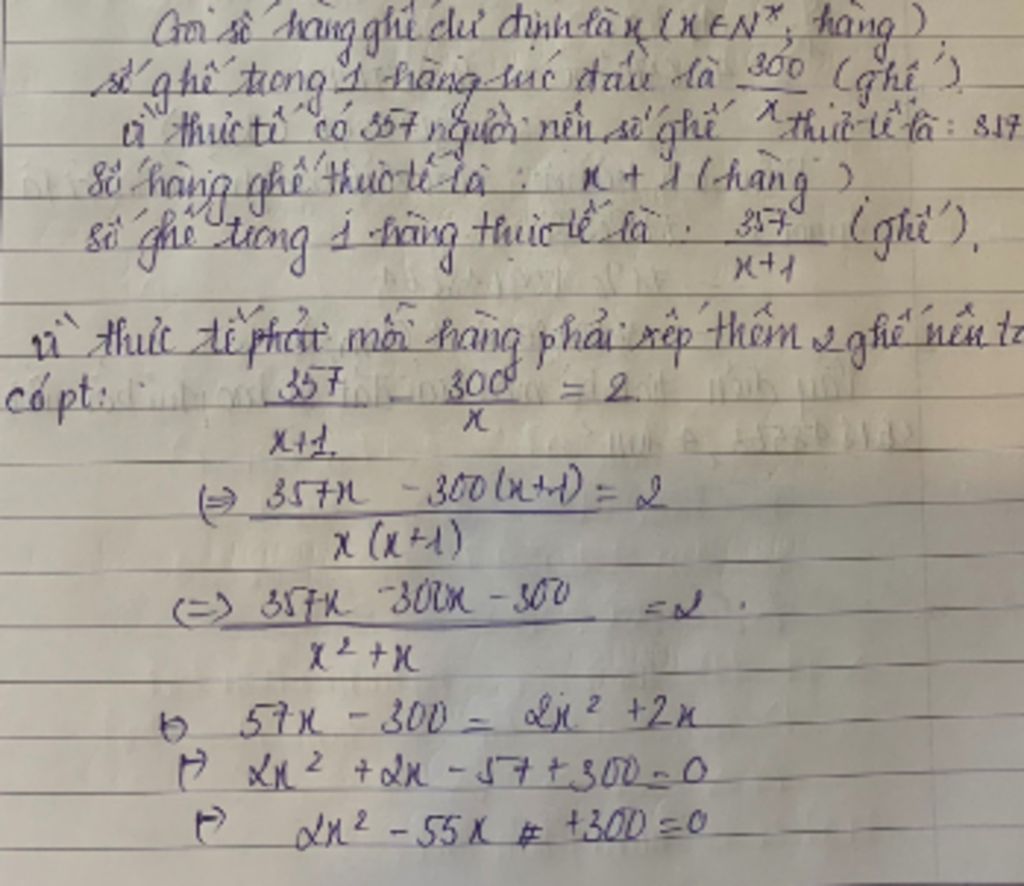 Gọi số hàng ghế dự định là x (x ∈ N*, hàng)
số ghế trong 1 hàng lúc đầu là 300/x (ghế)
Vì thực tế có 357 người nên số ghế thực tế là: 357
Số hàng ghế thực tế là : x + 1 (hàng)
Số ghế trong 1 hàng thực tế là : 357/(x+1) (ghế).
Vì thực tế mỗi hàng phải xếp thêm 2 ghế nên ta
có pt: 357/(x+1) - 300/x = 2
(=) (357x - 300(x+1))/(x(x+1)) = 2
(=) (357x - 300x - 300)/(x² + x) = 2
57x - 300 = 2x² + 2x
2x² + 2x - 57 + 300 = 0
2x² - 55x + 300 = 0